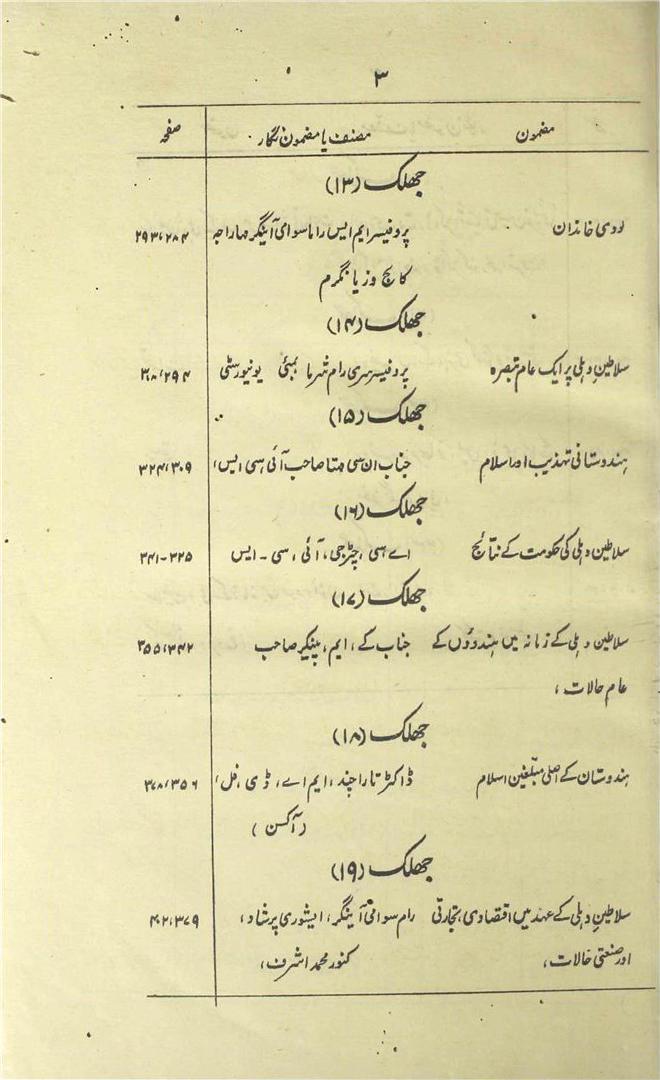 ۳
مضمون مصنف یا مضمون نگار صفحہ
جھلک (۱۳)
لودی خاندان پروفیسر ایم ایس راماسوامی آینگر مہاراجہ ۲۹۳،۲۸۴
کالج وزیانگرم
جھلک (۱۴)
سلاطین دہلی پر ایک عام تبصرہ پروفیسر سری رام شرما بمبئی یونیورسٹی ۳۰۸،۲۹۴
جھلک (۱۵)
ہندوستانی تہذیب اور اسلام جناب ان سی مہتا صاحب آئی سی ایس، ۳۲۴،۳۰۹
جھلک (۱۶)
سلاطین دہلی کی حکومت کے نتائج اے سی، چٹرجی، آئی، سی ۔ ایس ۳۴۱-۳۲۵
جھلک (۱۷)
سلاطین دہلی کے زمانہ میں ہندوؤں کے جناب کے، ایم، پنیکر صاحب ۳۵۵،۳۴۲
عام حالات،
جھلک (۱۸)
ہندوستان کے اصلی مبلّغین اسلام ڈاکٹر تارا چند، ایم اے، ڈی، فل، ۳۷۸،۳۵۶
(آکسن)
جھلک (۱۹)
سلاطین دہلی کے عہد میں اقتصادی، تجارتی رام سوامی آینگر، ایشوری پرشاد، ۴۰۲،۳۷۹
اور صنعتی حالات، کنور محمد اشرف،